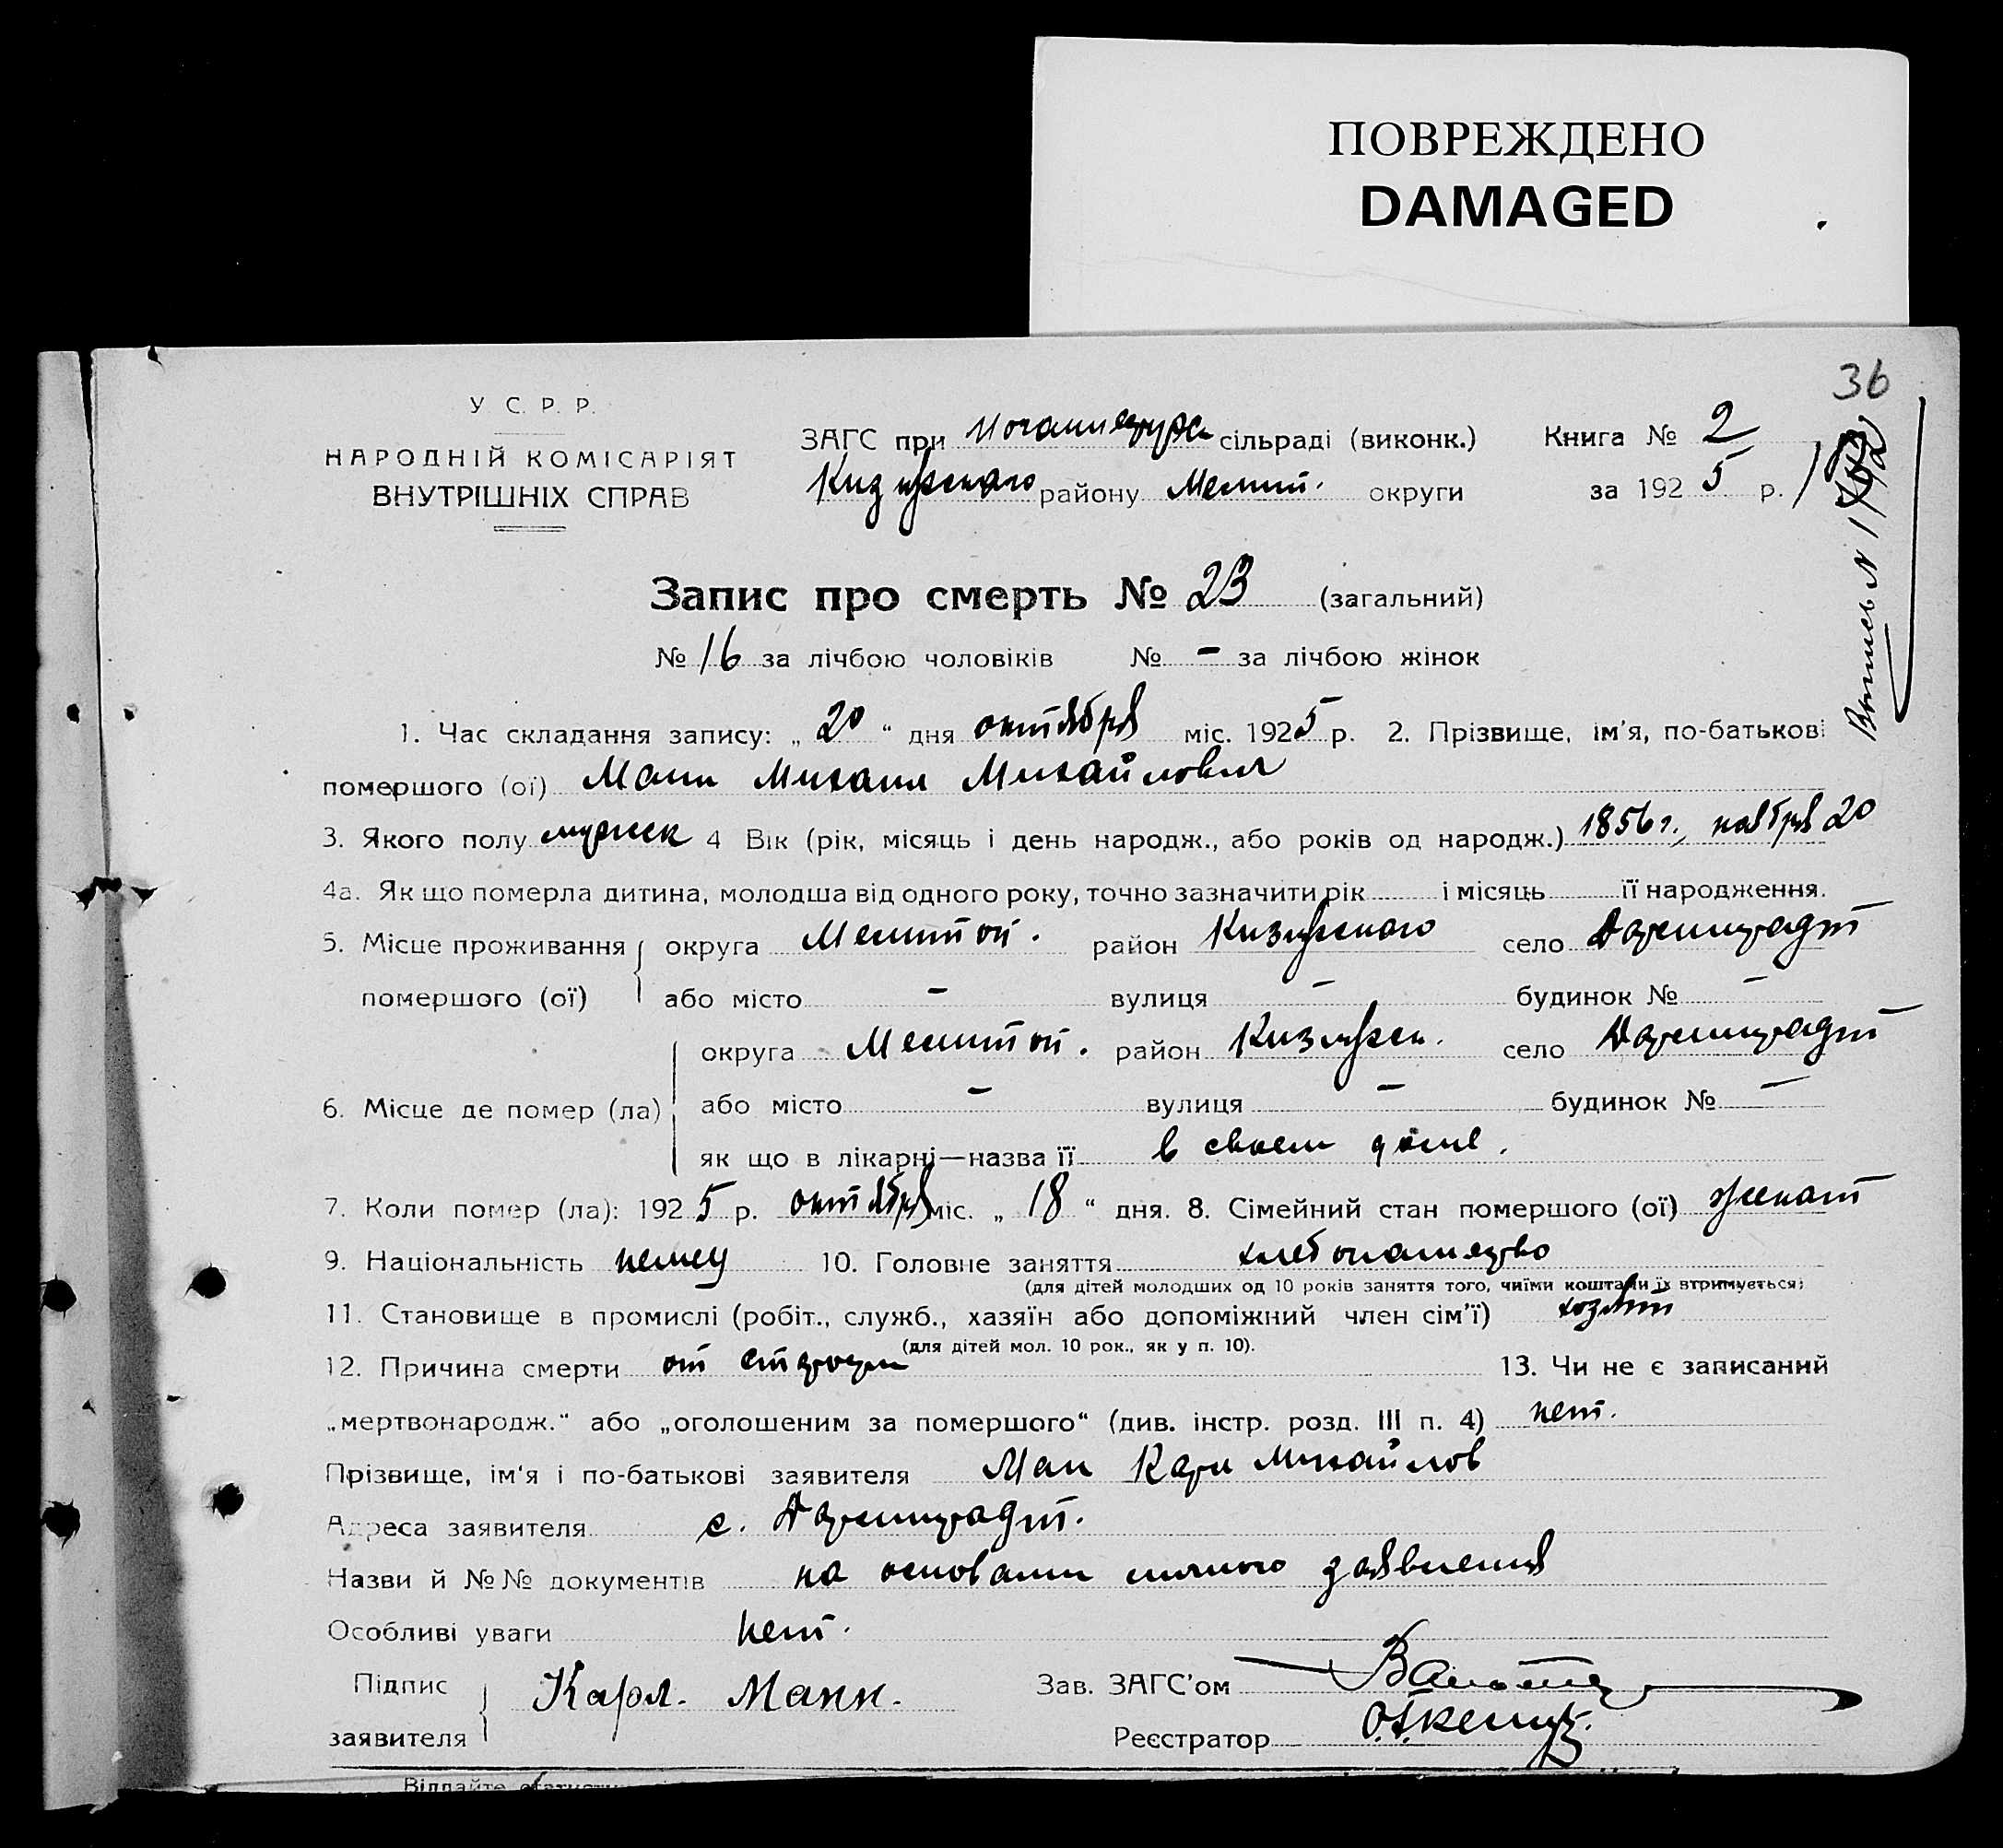 ПОВРЕЖДЕНО
DAMAGED
36
У С. Р. Р.
НАРОДНІЙ КОМІСАРІЯТ
ВНУТРІШНІХ СПРАВ
ЗАГС при сільраді (виконк.) Книга № 2
району Мелит. округи за 1925 р.
Выпись №
Запис про смерть № 23 (загальний)
№ 16 за лічбою чоловіків № – за лічбою жінок
1. Час складання запису: „ 20 “ дня октября міс. 1925 р. 2. Прізвище, ім'я, по-батькові
помершого (ої) Манн Михаил Михайлович
3. Якого полу мужск 4 Вік (рік, місяць і день народж., або років од народж.) 1856 г., ноября 20
4а. Як що померла дитина, молодша від одного року, точно зазначити рік і місяць її народження.
5. Місце проживання округа Мелитоп. район село Дармштадт
помершого (ої) або місто – вулиця – будинок № –
округа Мелитоп. район село Дармштадт
6. Місце де помер (ла) або місто – вулиця – будинок № –
як що в лікарні—назва її в своем доме.
7. Коли помер (ла): 1925 р. октября міс. „ 18 “ дня. 8. Сімейний стан помершого (ої) женат
9. Національність немец 10. Головне заняття хлебопашество
(для дітей молодших од 10 років заняття того, чиїми коштами їх втримується)
11. Становище в промислі (робіт., служб., хазяїн або допоміжний член сім'ї) хозяин
(для дітей мол. 10 рок., як у п. 10).
12. Причина смерти от старости 13. Чи не є записаний
„мертвонародж.“ або „оголошеним за помершого“ (див. інстр. розд. III п. 4) нет.
Прізвище, ім'я і по-батькові заявителя Ман Карл Михайлов
Адреса заявителя с. Дармштадт.
Назви й №№ документів на основании личного заявления
Особливі уваги нет.
Підпис
заявителя Карл. Манн.
Зав. ЗАГС'ом
Реєстратор